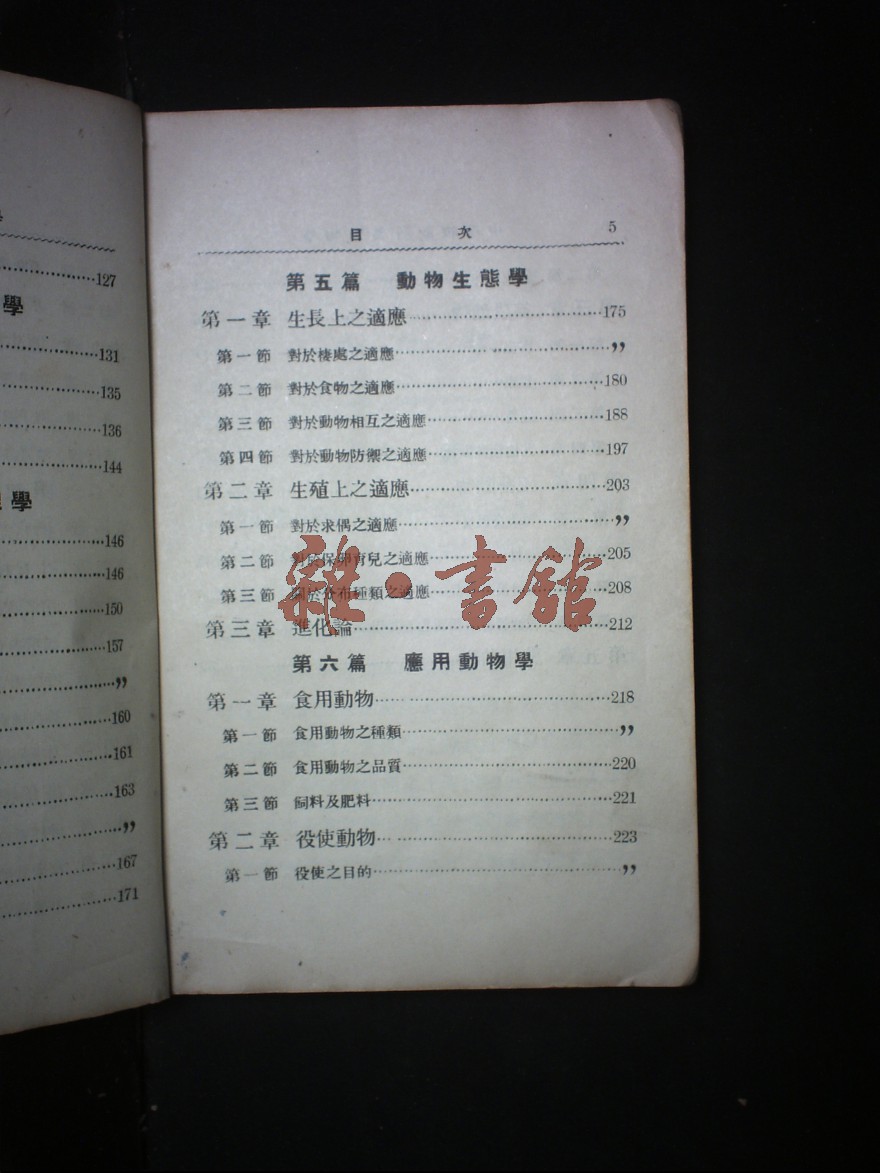 學
127
學
131
135
136
144
學
146
146
150
157
"
160
161
163
"
167
171
目 次 5
第五篇 動物生態學
第一章 生長上之適應 175
第一節 對於棲處之適應 "
第二節 對於食物之適應 180
第三節 對於動物相互之適應 188
第四節 對於動物防禦之適應 197
第二章 生殖上之適應 203
第一節 對於求偶之適應 "
第二節 對於保卵育兒之適應 205
第三節 關於分布種類之適應 208
第三章 進化論 212
第六篇 應用動物學
第一章 食用動物 218
第一節 食用動物之種類 "
第二節 食用動物之品質 220
第三節 飼料及肥料 221
第二章 役使動物 223
第一節 役使之目的 "
雜·書館